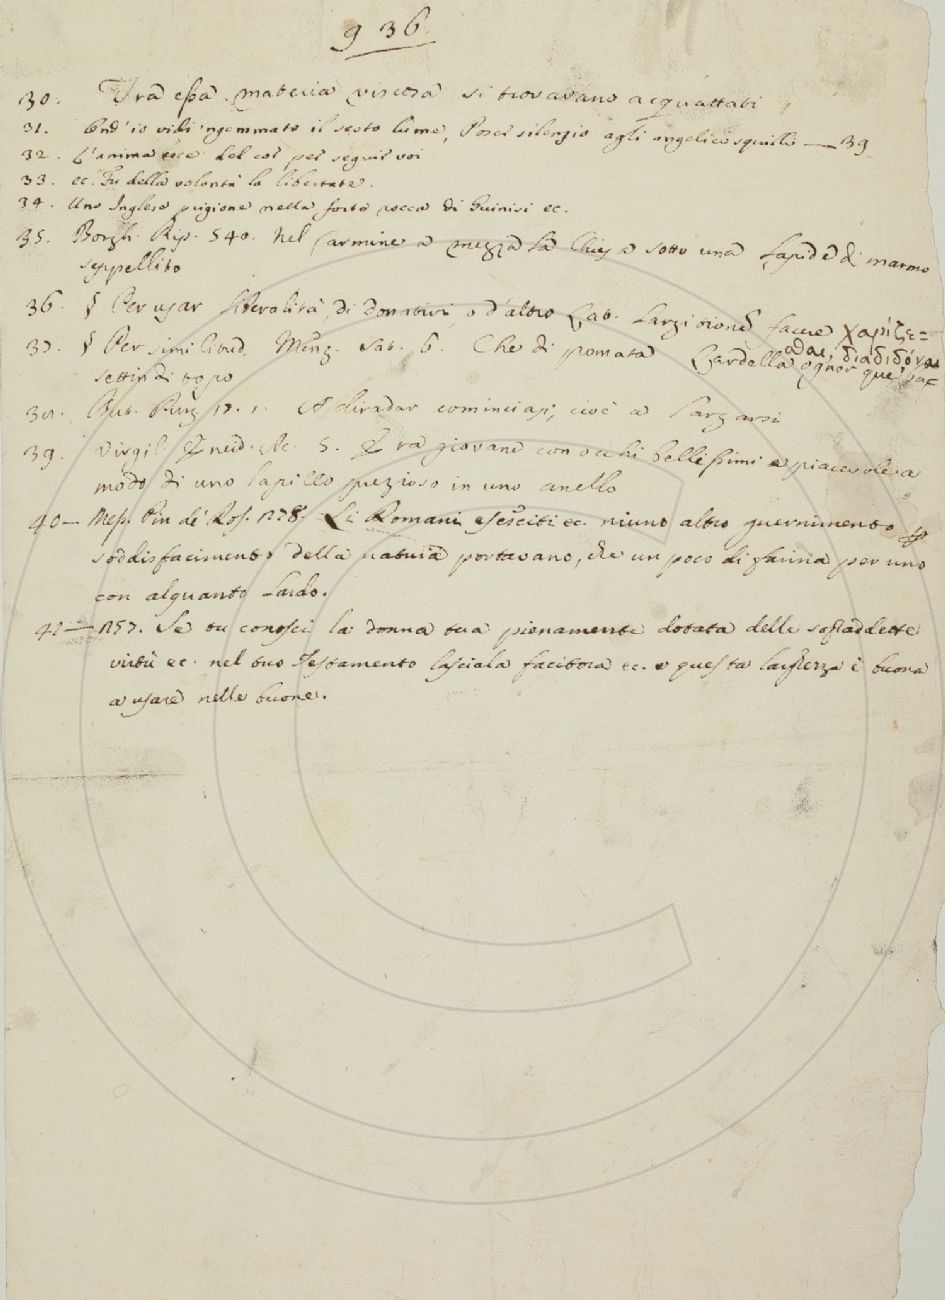 936.
30. Tra essa materia viscosa si trovavano acquattati
31. Ond' io vidi 'ngemmato il sesto lume, Poser silenzio agli angelici squilli — 39
32. L'anima esce del cor per seguir voi
33. ec. Fu della volontà la libertate.
34. Uno Inglese prigione nella forte rocca di Guinisi ec.
35. Borgh. Rip. 540. Nel Carmine a mezza la Chiesa sotto una Lapide di marmo
seppellito
36. § Per usar liberalità, di donativi, o d'altro Lat. Largitionem facere χαρίζε=
σθαι, διαδιδόναι
37. § Per similitud. Menz. sat. 6. Che di pomata Lardella ognor que'
settin di topo
38. But. Purg 17. 1. A diradar cominciasi, cioè a largarsi
39. Virgil. Æneid. M. S. Era giovane con occhi bellissimi e piacevole a
modo di uno lapillo prezioso in uno anello
40— Mess. Pin de' Ros. 178. Li Romani eserciti ec. niuno altro guernimento a
soddisfacimento della natura portavano, che un poco di farina per uno
con alquanto Lardo.
41— 157. Se tu conosci la donna tua pienamente dotata delle sopraddette
virtù ec. nel tuo Testamento lasciala facitora ec. e questa larghezza è buona
a usare nelle buone.